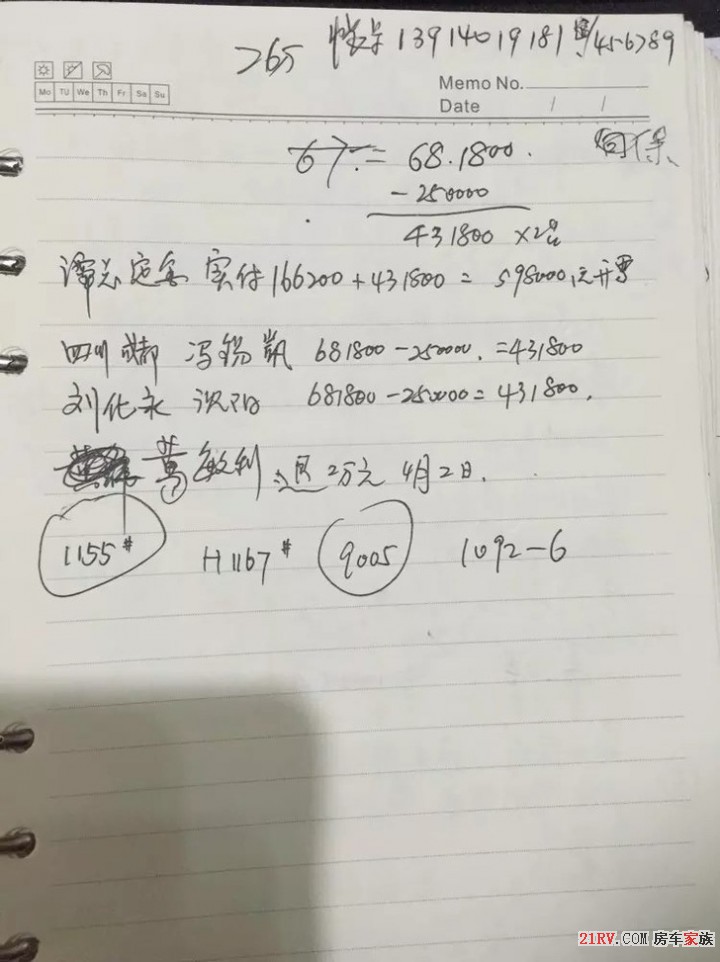 265 13914019181 456789
Mo TU We Th Fr Sa Su
Memo No.
Date / /
67.= 68.1800.
-250000
431800 ×2
定金 实付166200+431800=598000元开票
四川成都 冯锡凯 681800-250000.=431800
刘化永 沈阳 681800-250000=431800.
敏利 退2万元 4月2日.
1155# H1167# 9005 1092-6
21RV.COM 房车家族